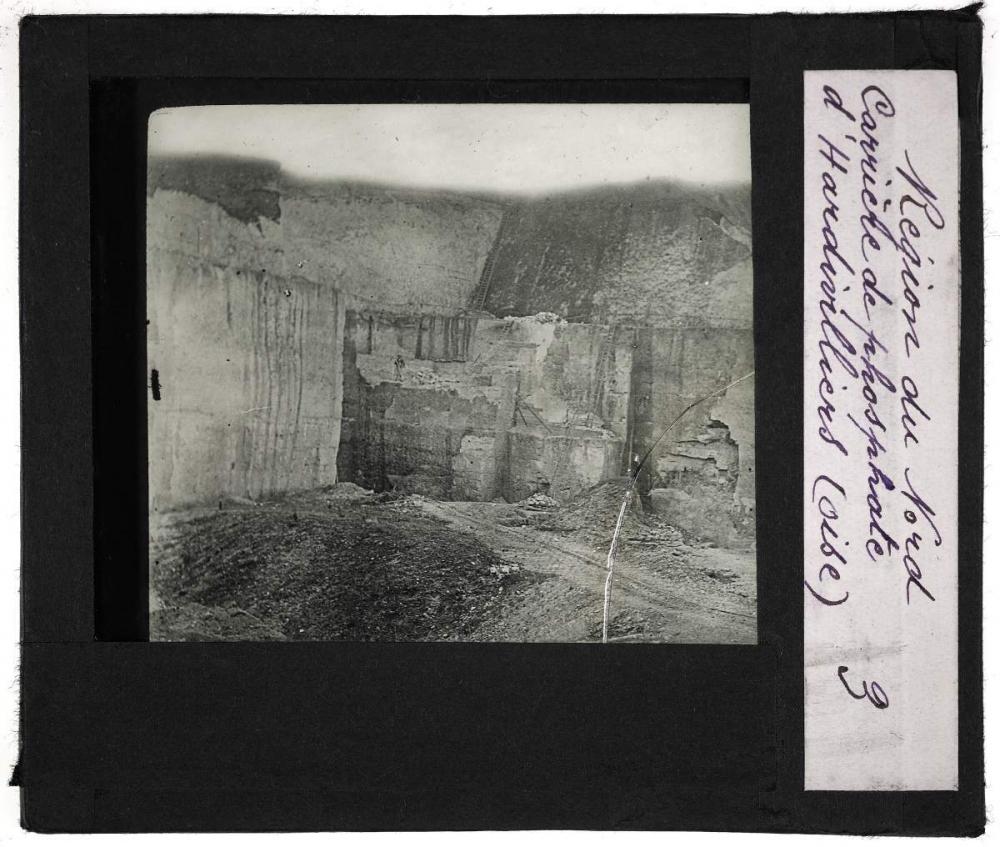 Région du Nord
Carrière de phosphate
d'Hardivilliers (Oise)
3